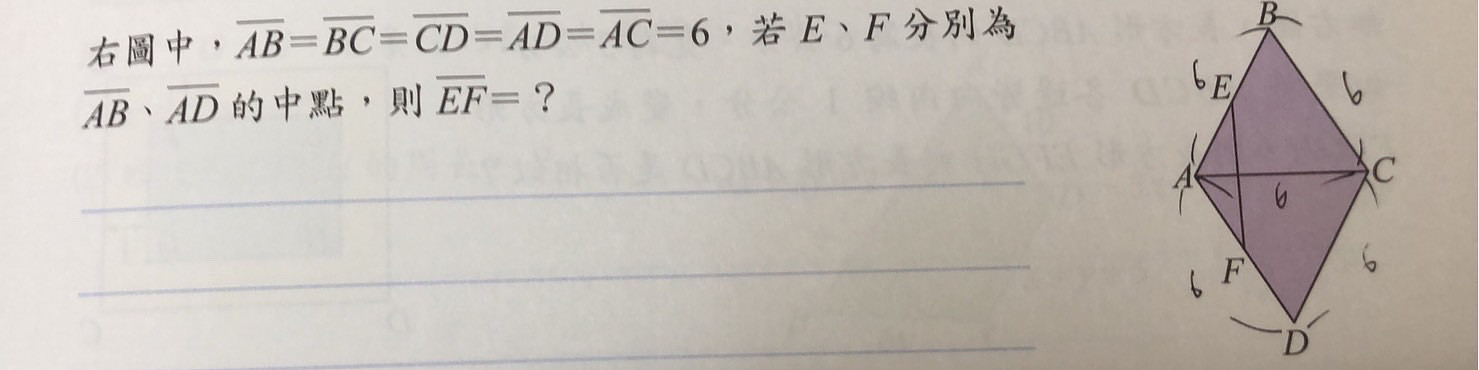 右圖中，AB=BC=CD=AD=AC=6，若 E、F 分別為
AB、AD 的中點，則 EF=？
B
6
E
6
A
C
6
F
6
6
D